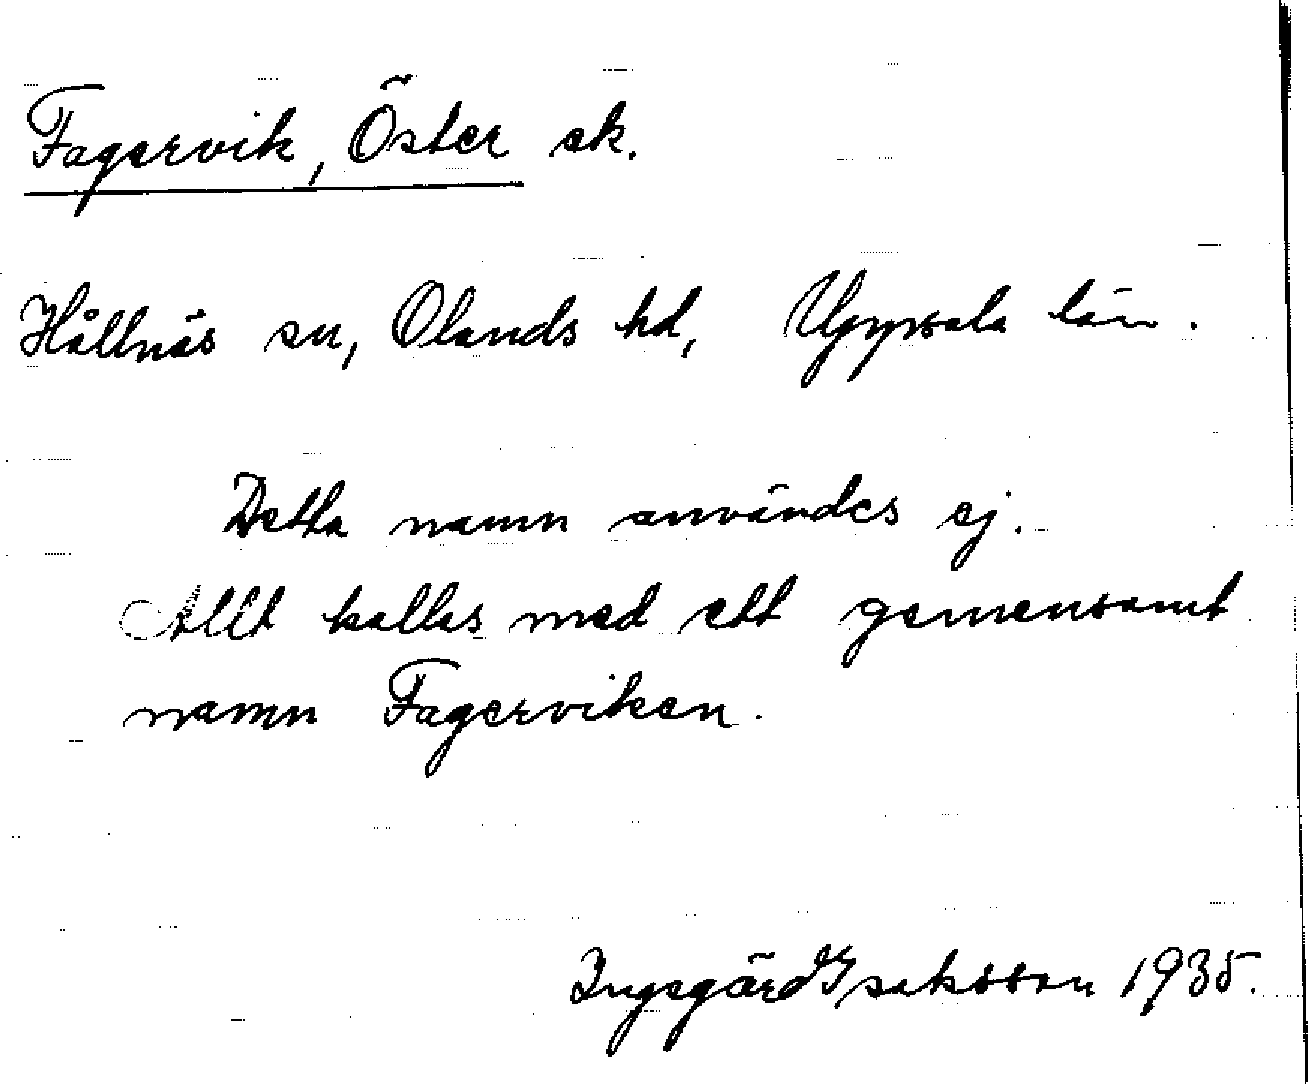 Fagervik, Öster ek.
Hållnäs sn, Olands hd, Uppsala län.
Detta namn användes ej.
Allt kallas med ett gemensamt
namn Fagerviken.
Ingegärd Isaksson 1935.